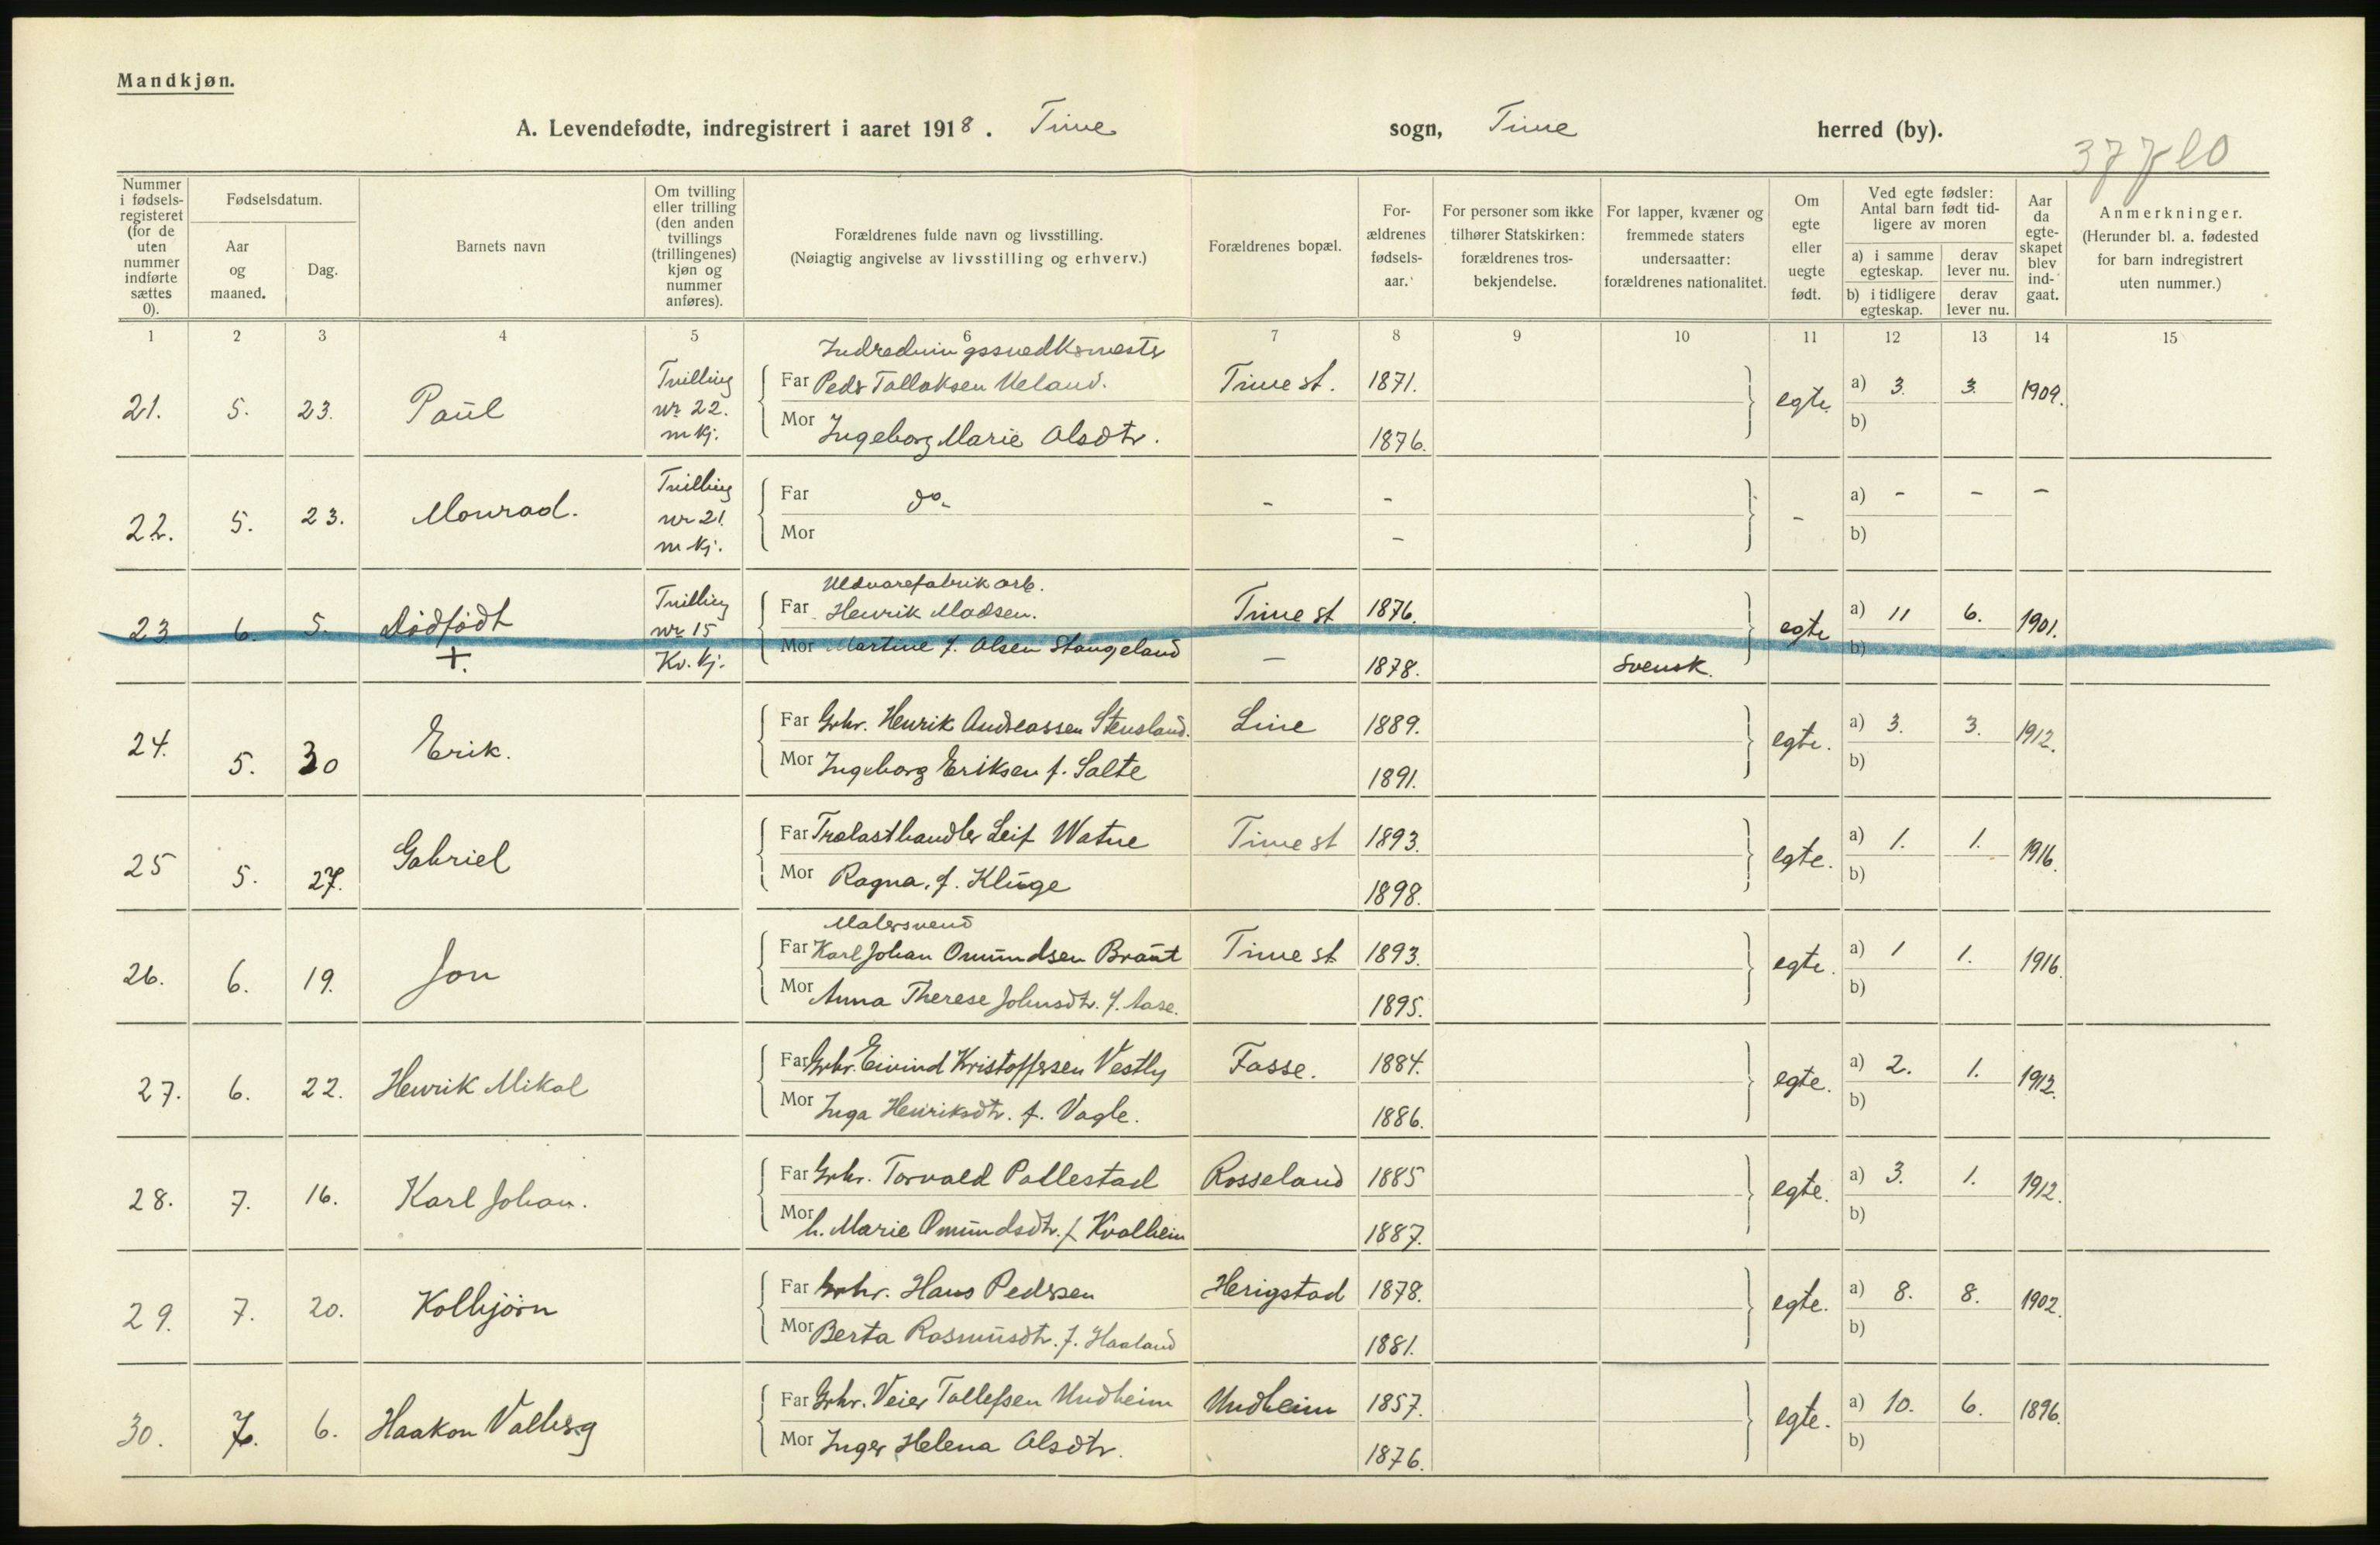 Mandkjøn.
A. Levendefødte, indregistrert i aaret 1918. Time sogn, Time herred (by).
Nummer i fødsels-registeret (for de uten nummer indførte sættes 0).
Fødselsdatum.
Aar og maaned.
Dag.
Barnets navn
Om tvilling eller trilling (den anden tvillings (trillingenes) kjøn og nummer anføres).
Forældrenes fulde navn og livsstilling.
(Nøiagtig angivelse av livsstilling og erhverv.)
Forældrenes bopæl.
For-ældrenes fødsels-aar.
For personer som ikke tilhører Statskirken: forældrenes tros-bekjendelse.
For lapper, kvæner og fremmede staters undersaatter: forældrenes nationalitet.
Om egte eller uegte født.
Ved egte fødsler: Antal barn født tid-ligere av moren
a) i samme egteskap. derav lever nu.
b) i tidligere egteskap. derav lever nu.
Aar da egte-skapet blev ind-gaat.
Anmerkninger.
(Herunder bl. a. fødested for barn indregistrert uten nummer.)
1 2 3 4 5 6 7 8 9 10 11 12 13 14 15
Indredningssnedkermester
21. 5. 23. Paul Tvilling nr 22. m kj. Far Peder Tollaksen Ueland. Time st. 1871. egte a) 3 3. 1909.
Mor Ingeborg Marie Olsdtr. 1876. b)
22. 5. 23. Monrad. Tvilling nr 21. m kj. Far do. - - - a) - - -
Mor - b)
Uldvarefabrik arb.
23 6. 5. Dødfødt +. Tvilling nr 15 Kv. kj. Far Henrik Madsen. Time st 1876. egte a) 11 6. 1901.
Mor Martine f. Olsen Stangeland - 1878. svensk. b)
24. 5. 30 Erik. Far Grbr. Henrik Andreassen Stensland. Line 1889. egte. a) 3. 3. 1912.
Mor Ingeborg Eriksen f. Salte 1891. b)
25 5. 27. Gabriel Far Trælasthandler Leif Watne Time st 1893. egte. a) 1. 1. 1916.
Mor Ragna, f. Kluge 1898. b)
Malersvend
26. 6. 19. Jon Far Karl Johan Omundsen Braut Time st 1893. egte. a) 1 1. 1916.
Mor Anna Therese Johnsdtr. f. Aase. 1895. b)
27. 6. 22. Henrik Mikal Far Grbr. Eivind Kristoffersen Vestly Fosse. 1884. egte. a) 2. 1. 1912.
Mor Inga Henriksdtr. f. Vagle. 1886. b)
28. 7. 16. Karl Johan. Far Grbr. Torvald Pollestad Rosseland 1885 egte. a) 3. 1. 1912.
Mor h. Marie Omundsdtr. f Kvalheim 1887. b)
29. 7. 20. Kolbjørn Far Grbr. Hans Pedersen Herigstad 1878. egte. a) 8. 8. 1902.
Mor Berta Rasmusdtr. f. Haaland 1881. b)
30. 7. 6. Haakon Valberg Far Grbr. Veier Tollefsen Undheim Undheim 1857. egte. a) 10. 6. 1896.
Mor Inger Helena Olsdtr. 1876. b)